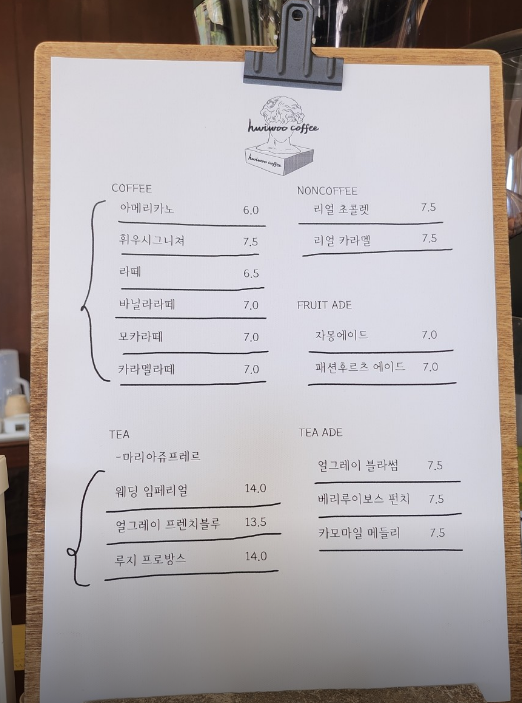 hwiwoo coffee
hwiwoo coffee
COFFEE
아메리카노 6.0
휘우시그니져 7.5
라떼 6.5
바닐라라떼 7.0
모카라떼 7.0
카라멜라떼 7.0
NONCOFFEE
리얼 초콜렛 7.5
리얼 카라멜 7.5
FRUIT ADE
자몽에이드 7.0
패션후르츠 에이드 7.0
TEA
-마리아쥬프레르
웨딩 임페리얼 14.0
얼그레이 프렌치블루 13.5
루지 프로방스 14.0
TEA ADE
얼그레이 블라썸 7.5
베리루이보스 펀치 7.5
카모마일 메들리 7.5